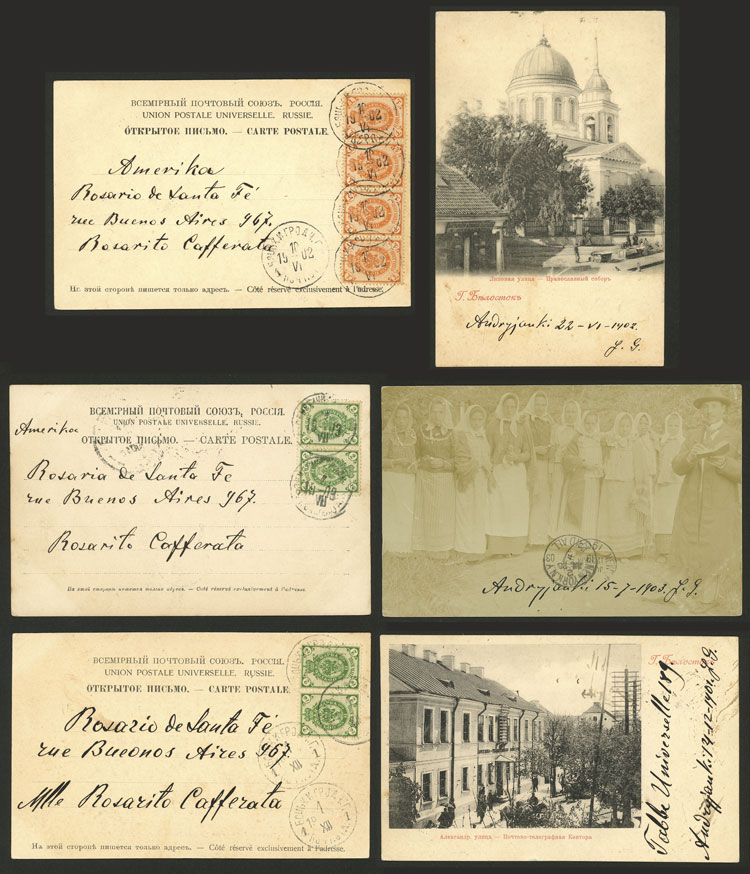 ВСЕМІРНЫЙ ПОЧТОВЫЙ СОЮЗЪ. РОССІЯ.
UNION POSTALE UNIVERSELLE. RUSSIE.
ОТКРЫТОЕ ПИСЬМО. — CARTE POSTALE.
Amerika
Rosario de Santa Fé
rue Buenos Aires 967.
Rosarito Cafferata
На этой сторонѣ пишется только адресъ. — Côté réservé exclusivement à l'adresse.
Липовая улица — Православный соборъ
Г. Бѣлостокъ
Andryjanki 22-VI-1902.
J. G.
ВСЕМІРНЫЙ ПОЧТОВЫЙ СОЮЗЪ, РОССІЯ.
UNION POSTALE UNIVERSELLE. RUSSIE.
ОТКРЫТОЕ ПИСЬМО. — CARTE POSTALE.
Amerika
Rosaria de Santa Fé
rue Buenos Aires 967.
Rosarito Cafferata
На этой сторонѣ пишется только адресъ. — Coté réservé exclusivement à l'adresse.
Andryjanki 15-7-1903. J. G.
ВСЕМІРНЫЙ ПОЧТОВЫЙ СОЮЗЪ. РОССІЯ.
UNION POSTALE UNIVERSELLE. RUSSIE.
ОТКРЫТОЕ ПИСЬМО. — CARTE POSTALE.
Rosario de Santa Fé
rue Bueonos Aires 967
Mlle Rosarito Cafferata
На этой сторонѣ пишется только адресъ. — Côté réservé exclusivement à l'adresse.
Г. Бѣлостокъ
Александр. улица — Почтово-телеграфная Контора
Tabbe Universelle 89
Andryjanki 14-12-1901. J. G.